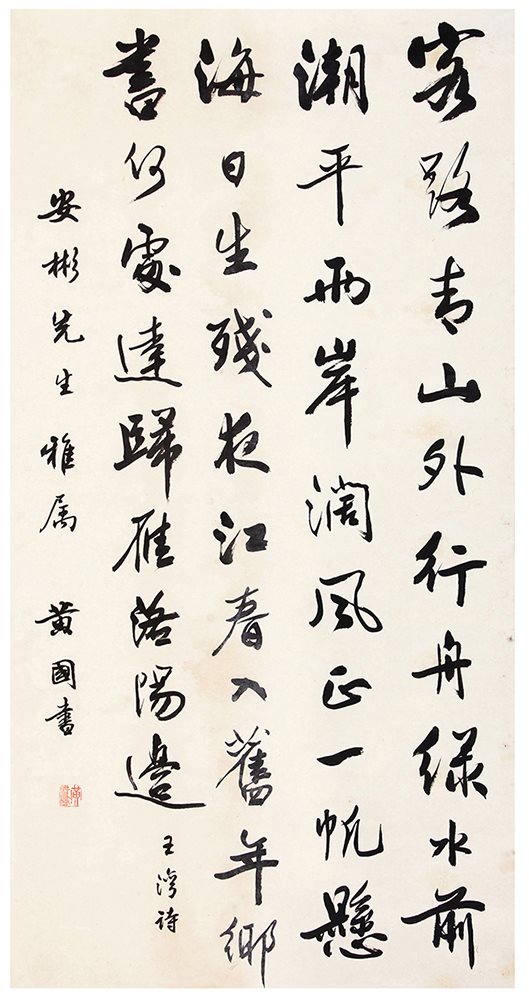 客路青山外行舟绿水前
潮平两岸濶风正一帆懸
海日生残夜江春入舊年鄉
書何處達歸雁洛陽邊
王湾诗
安彬先生雅属
黄國书